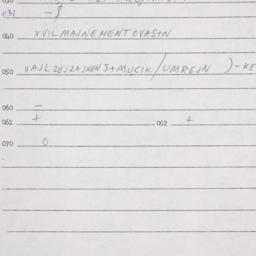 031 -}
040 XVILMAJNEHENTOVASTN
050 VAJLZEJZAJNENS+MUCIK/UMREJN )-KE
060 -
061 + 062 +
070 0